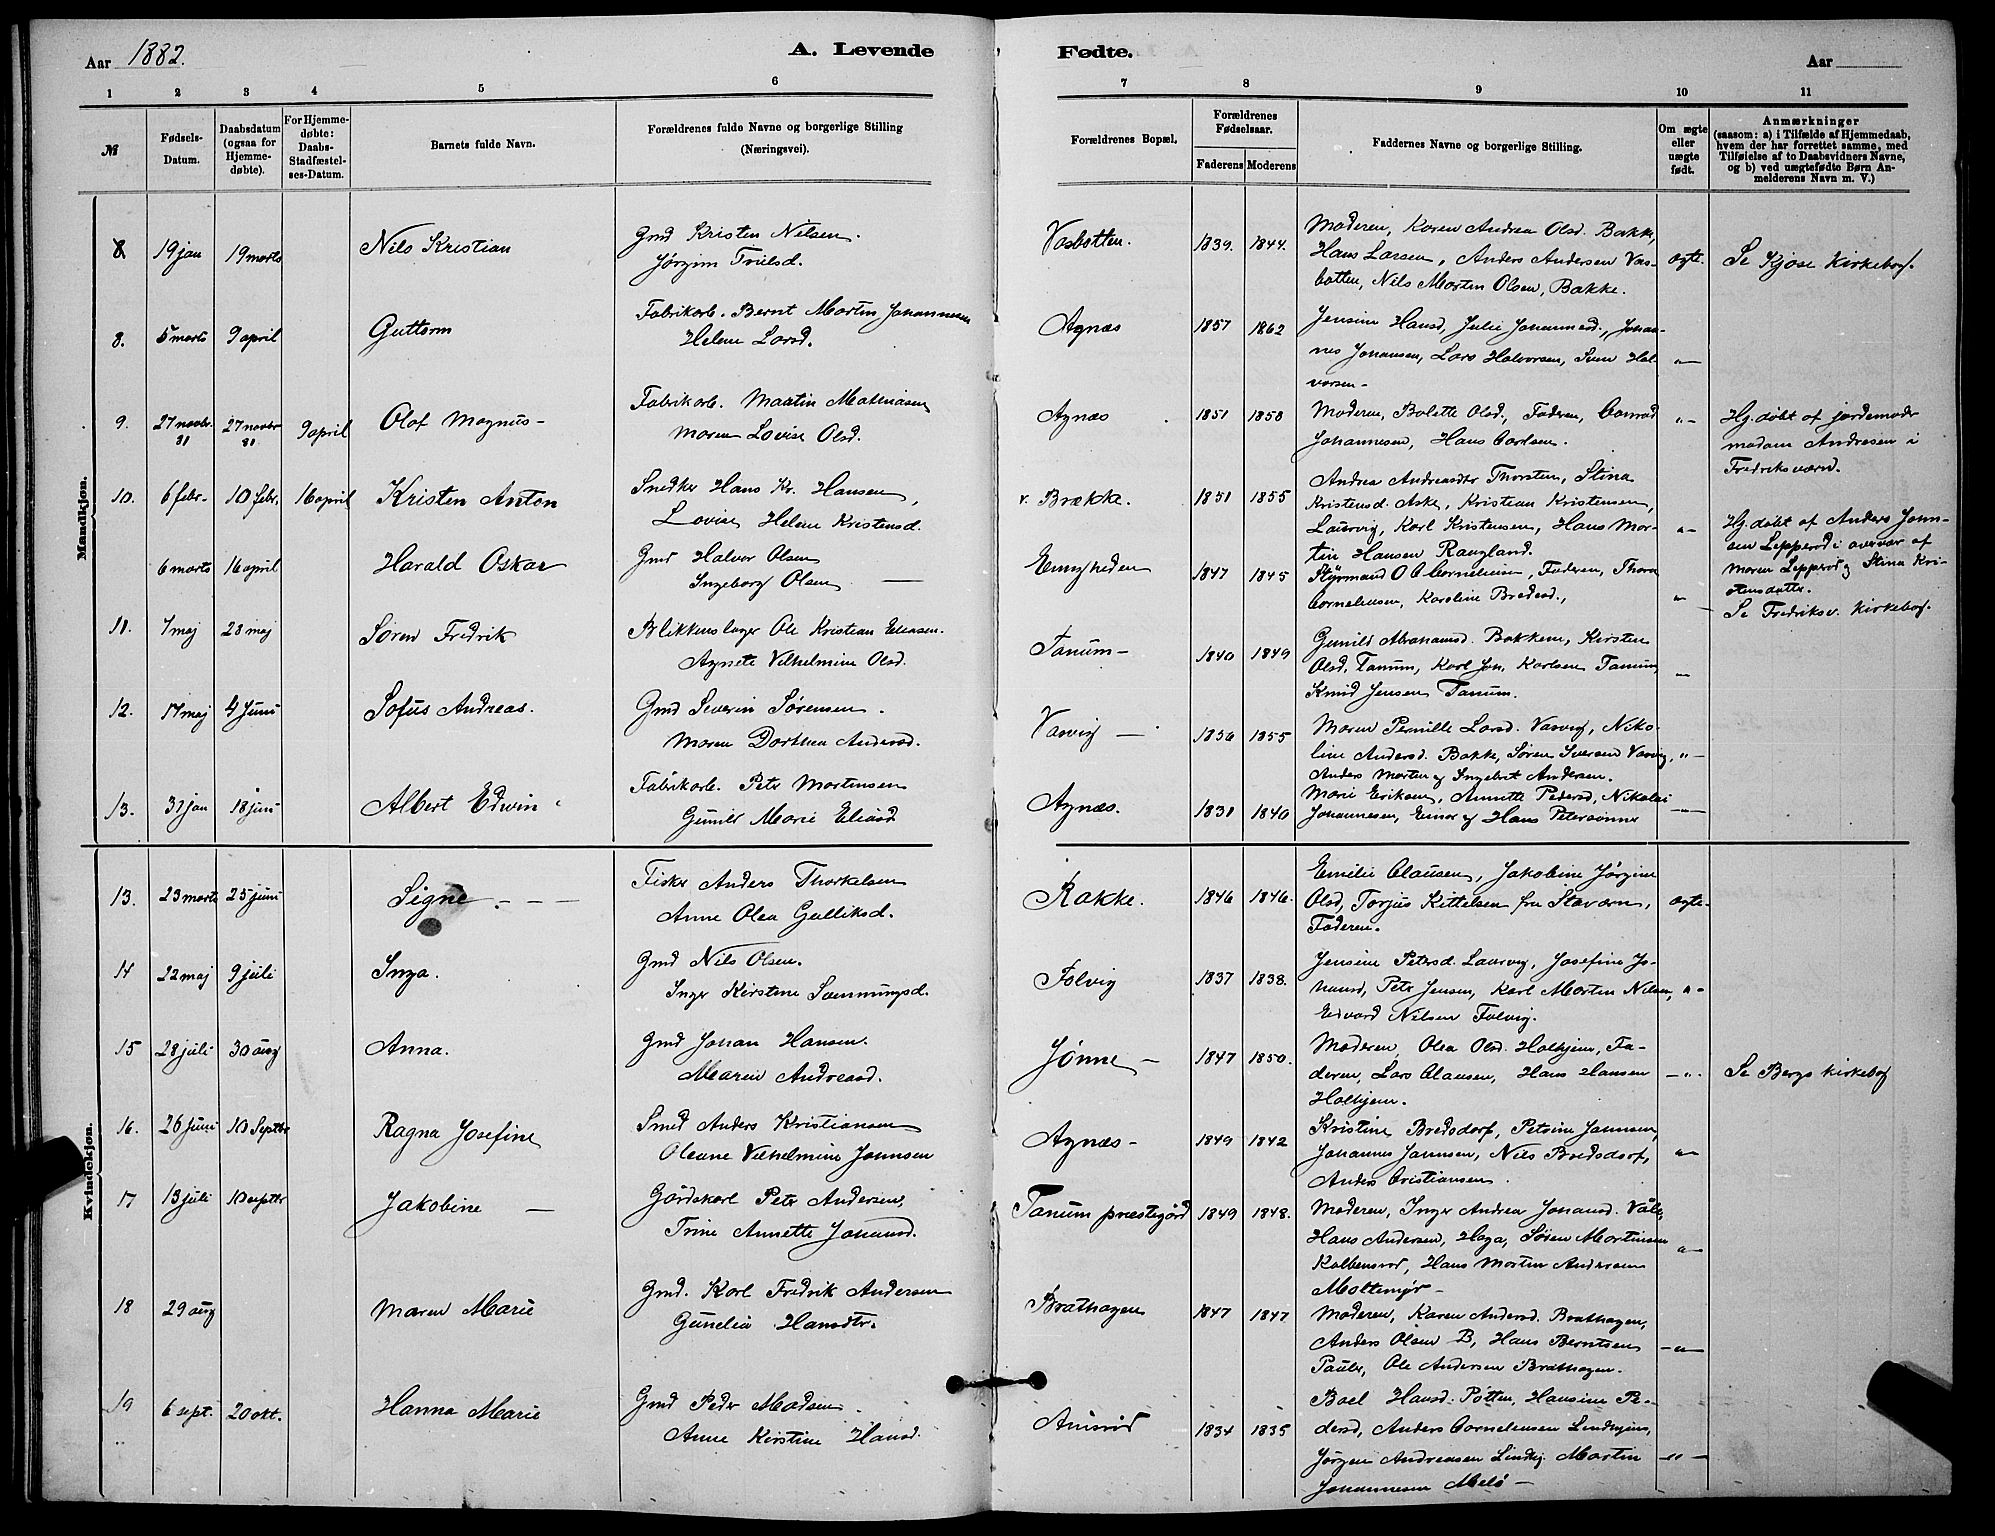 Aar 1882.
A. Levende Fødte.
Aar
1 2 3 4 5 6 7 8 9 10 11
№
Fødsels-Datum.
Daabsdatum (ogsaa for Hjemme-døbte).
For Hjemme-døbte: Daabs-Stadfæstel-ses-Datum.
Barnets fulde Navn.
Forældrenes fulde Navne og borgerlige Stilling (Næringsvei).
Forældrenes Bopæl.
Forældrenes Fødselsaar.
Faderens Moderens
Faddernes Navne og borgerlige Stilling.
Om ægte eller uægte født.
Anmærkninger
(saasom: a) i Tilfælde af Hjemmedaab, hvem der har forrettet samme, med Tilføielse af to Daabsvidners Navne, og b) ved uægtefødte Børn An-melderens Navn m. V.)
Mandkjøn.
8 19 jan 19 marts Nils Kristian
Gmd Kristen Nilsen.
Jørgine Trulsd.
Vasbotten. 1839. 1844.
Moderen, Karen Andrea Olsd. Bakke,
Hans Larsen, Anders Andersen Vas-
botten, Nils Morten Olsen, Bakke.
ægte. Se Kjose Kirkebog.
8. 5 marts 9 april Guttorm
Fabrikarb. Bernt Martin Johannesen
Helene Larsd.
Agnæs 1857 1862
Jensine Hansd, Julie Johannesd., Johan-
nes Johansen, Lars Halvorsen, Sven Hal-
vorsen -
"
9. 27 novbr 81 27 novbr 81 9 april Olaf Magnus -
Fabrikarb. Martin Mathiasen
Maren Lovise Olsd.
Agnæs 1851 1858
Moderen, Bolette Olsd., Faderen, Conrad
Johannesen, Hans Carlsen.
"
Hj. døbt af jordemoder
madam Andresen i
Fredriksværn.
10. 6 febr. 10 febr. 16 april Kristen Anton
Snedker Hans Kr. Hansen,
Lovise Helene Kristensd.
v. Brække. 1851 1855
Andrea Andreasdtr Thorsten, Stina
Kristensd. Aske, Kristian Kristensen,
Laurvig, Karl Kristensen, Hans Mor-
tin Hansen Raugland.
"
Hj. døbt af Anders John-
sen Lepperød i overvær af
Maren Lepperød og Stina Kri-
stensdatter.
6 marts 16 april Harald Oskar
Gmd Halvor Olsen
Ingeborg Olsen
Enigheden 1847 1845
Styrmand O C Corneliusen, Faderen, Thora
Corneliusen, Karoline Bredesd.,
"
Se Fredriksv. Kirkebog.
11. 7 maj 28 maj Søren Fredrik
Blikkenslager Ole Kristian Eliasen.
Agnete Vilhelmine Olsd.
Tanum - 1840 1849
Gunild Abrahamsd. Bakken, Kirsten
Olsd, Tanum, Karl Joh. Karlsen Tanum,
Knud Jensen Tanum.
"
12. 17 maj 4 juni Sofus Andreas.
Gmd Severin Sørensen.
Maren Dorthea Andersd.
Vasvig - 1856 1855
Maren Pernille Larsd. Vasvig, Niko-
line Andersd. Bakke, Søren Iversen Vasvig,
Anders Morten og Ingebret Andersen.
"
13. 31 jan 18 juni Albert Edwin
Fabrikarb. Petr Mortensen
Gunild Marie Eliasd
Agnæs. 1838 1840
Marie Eriksen, Annette Pedersd, Nikolai
Johannesen, Einar og Hans Petersønner
"
Kvindekjøn.
13. 23 marts 25 juni Signe
Fisker Anders Thorkelsen
Anne Olea Gulliksd.
Rakke. 1846 1846.
Emilie Clausen, Jakobine Jørgine
Olsd, Torjus Kittelsen fra Staværn,
Faderen.
ægte.
14 22 maj 9 juli Inga.
Gmd Nils Olsen.
Inger Kirstine Sæmmungsd.
Folvig 1837 1838.
Jensine Petersd. Laurvig, Josefine Jo-
hansd, Petr Jensen, Karl Morten Nilsen,
Edvard Nilsen Folvig.
"
15 28 juli 30 aug Anna.
Gmd Johan Hansen.
Maren Andreasd.
Jønne - 1847 1850.
Moderen, Olea Olsd. Holhjem, Fa-
deren, Lars Clausen, Hans Hansen
Holhjem.
"
Se Bergs Kirkebog
16. 26 juni 10 Septbr Ragna Josefine
Smed Anders Kristiansen
Oleane Vilhelmine Johnsen
Agnæs - 1849 1842
Kristine Bredsdorf, Petrine Johnsen,
Johannes Johnsen, Nils Bredsdorf,
Anders Cristiansen.
"
17 13 juli 10 septbr Jakobine
Gårdskarl Petr Andersen,
Trine Annette Johansd.
Tanum præstegård 1849 1848.
Moderen, Inger Andrea Johansd. Våle,
Hans Andersen, Haga, Søren Martinsen
Kolbensrød, Hans Morten Andersen
Moltemyr -
"
18 29 aug Maren Marie
Gmd. Karl Fredrik Andersen
Gunelia Hansdtr.
Brathagen 1847 1847
Moderen, Karen Andersd. Brathagen,
Anders Olsen B, Hans Berntsen
Pauler, Ole Andersen Brathagen.
"
19 6 sept. 20 okt. Hanna Marie
Gmd Peder Madsen.
Anne Kirstine Hansd.
Anisrød 1834 1835
Boel Hansd. Pøtten, Hansine Pe-
dersd, Anders Corneliussen Lindhjem,
Jørgen Andreasen Lindhj. Martin
Johannesen Melø -
"